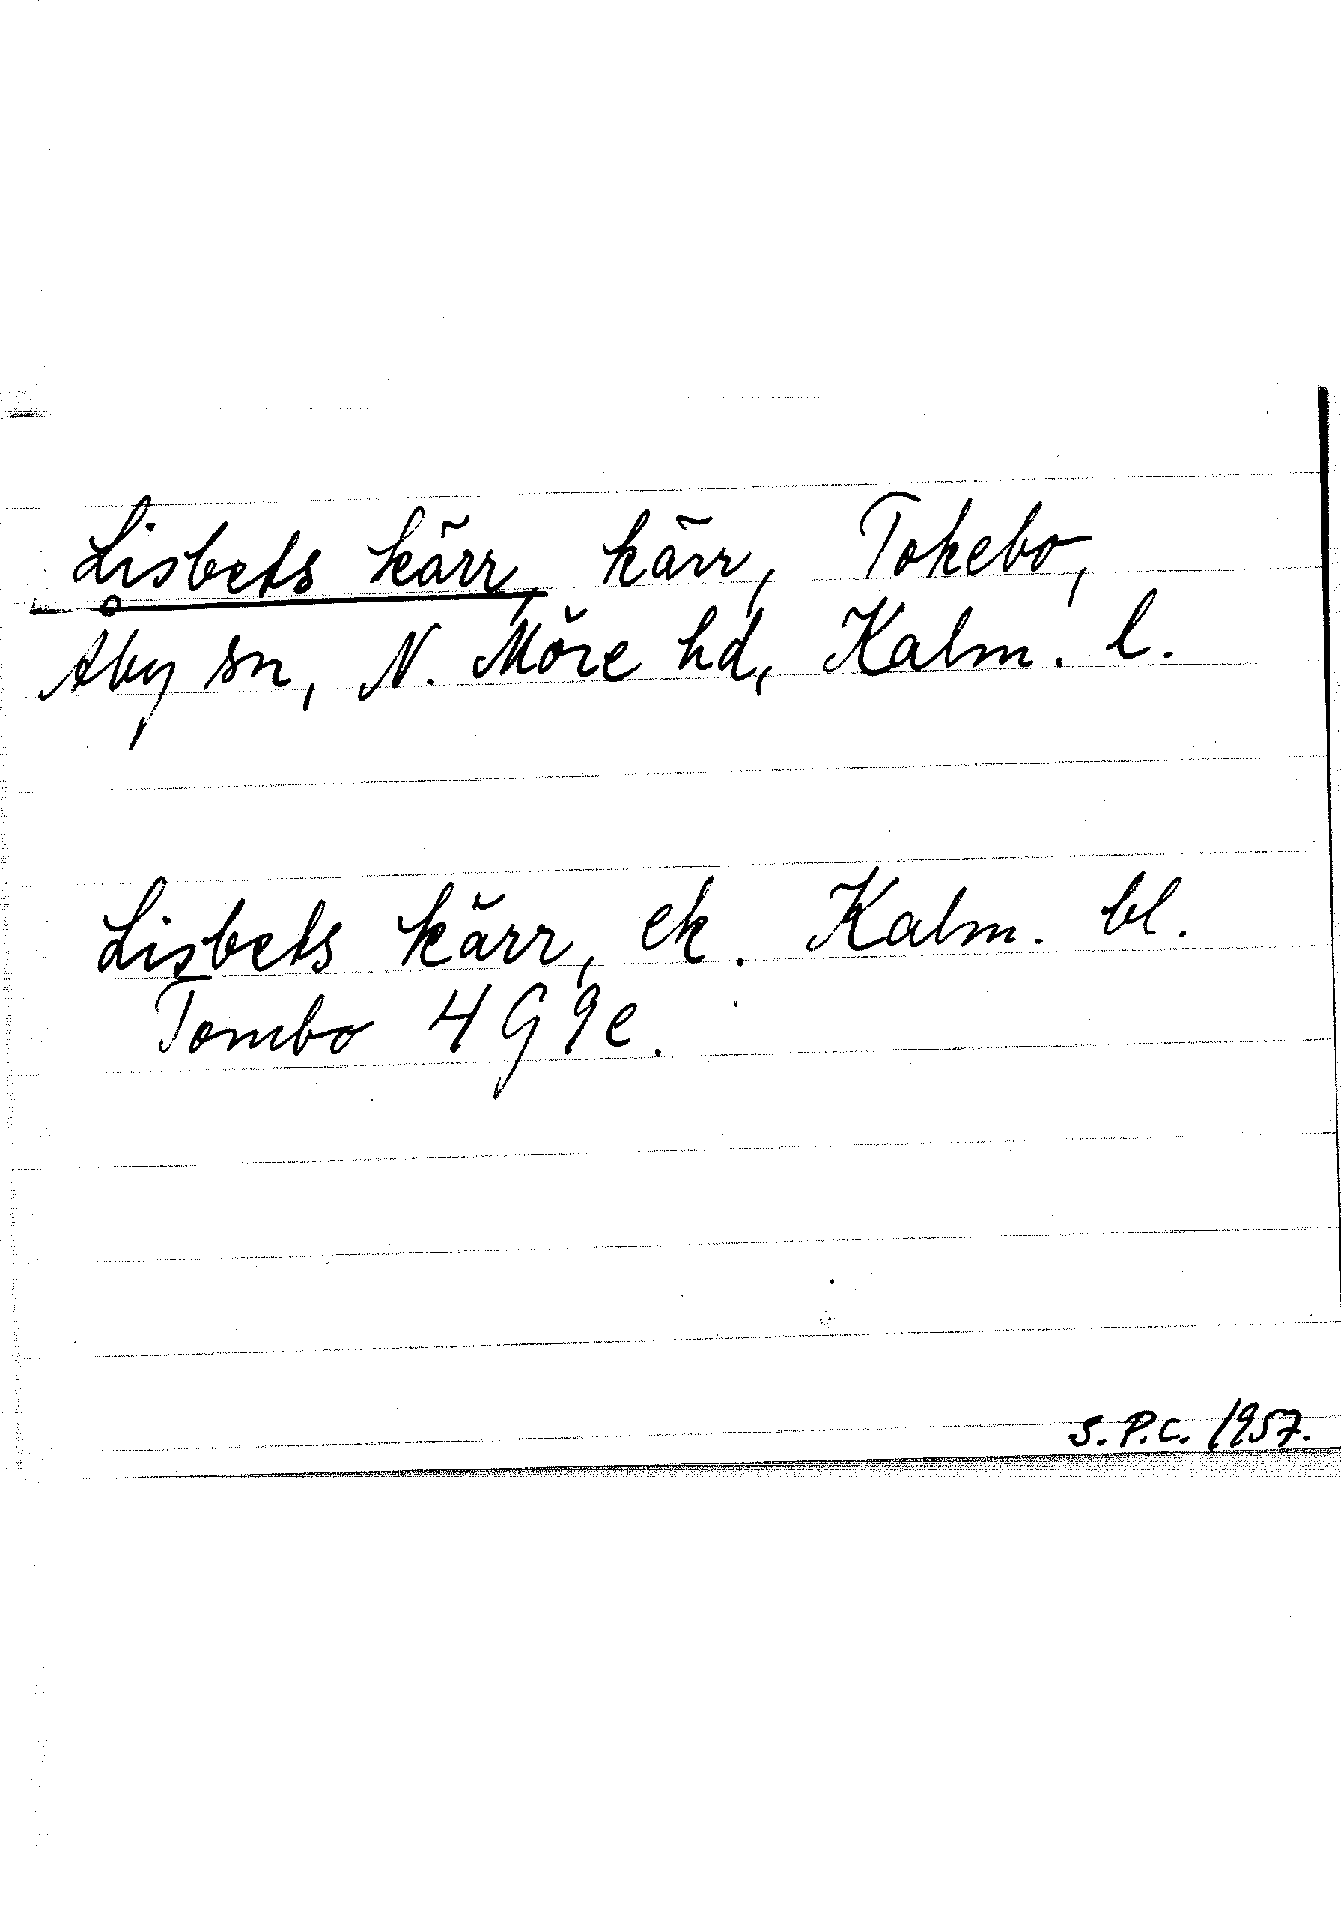 Lisbets kärr, kärr, Tokebo,
Åby sn, N. Möre hd, Kalm. l.
Lisbets kärr, ek. Kalm. bl.
Tombo 4G9e.
S.P.C. 1957.